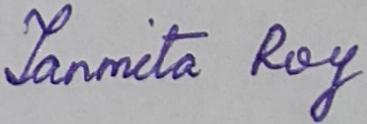 Tanmita Roy